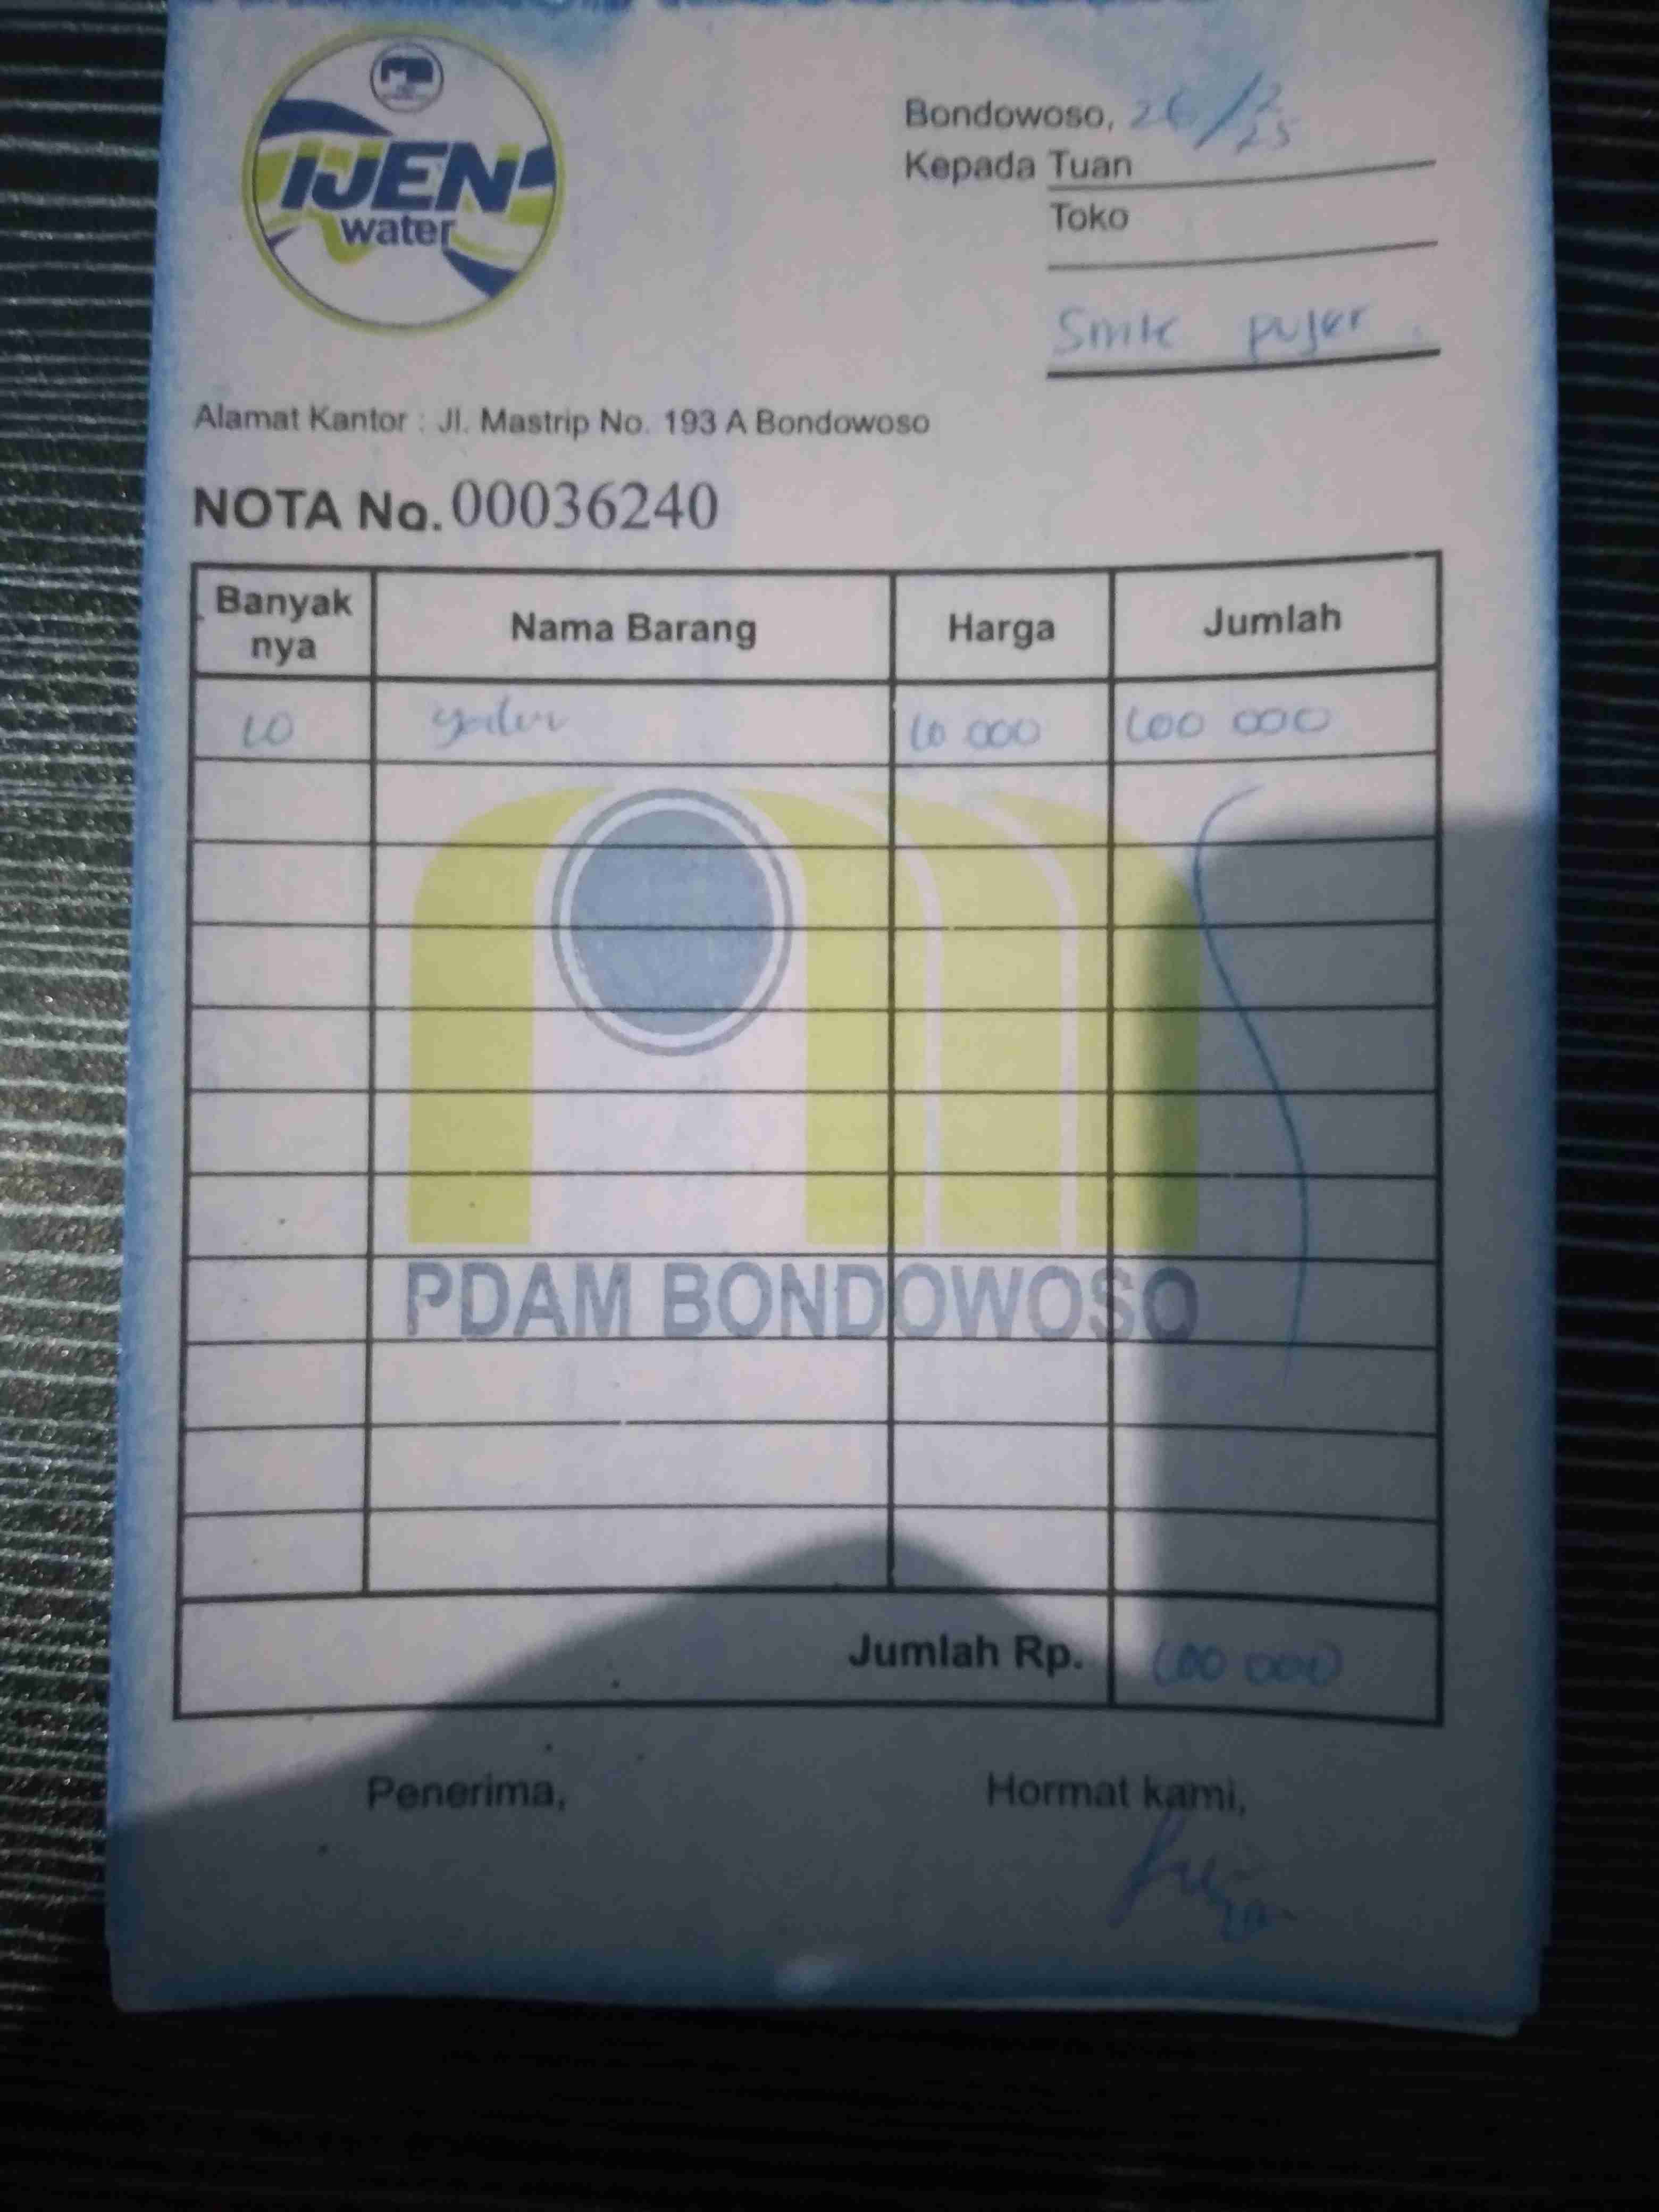 IJEN
water
Bondowoso, 26/2/25
Kepada Tuan
Toko
Smk pujer
Alamat Kantor : Jl. Mastrip No. 193 A Bondowoso
NOTA No. 00036240
Banyak nya Nama Barang Harga Jumlah
10 10 000 100 000
PDAM BONDOWOSO
Jumlah Rp. 100 000
Penerima, Hormat kami,